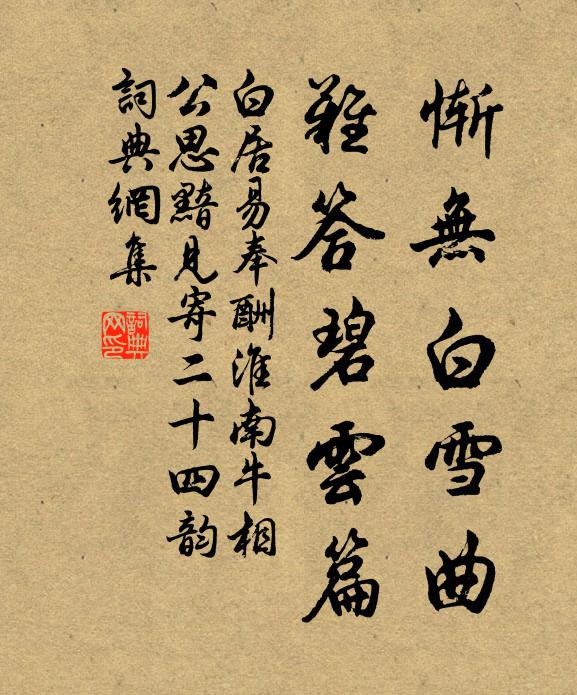 惭無白雪曲
難答碧雲篇
白居易奉酬淮南牛相
公思黯見寄二十四韵
詞典網集
詞典
网印